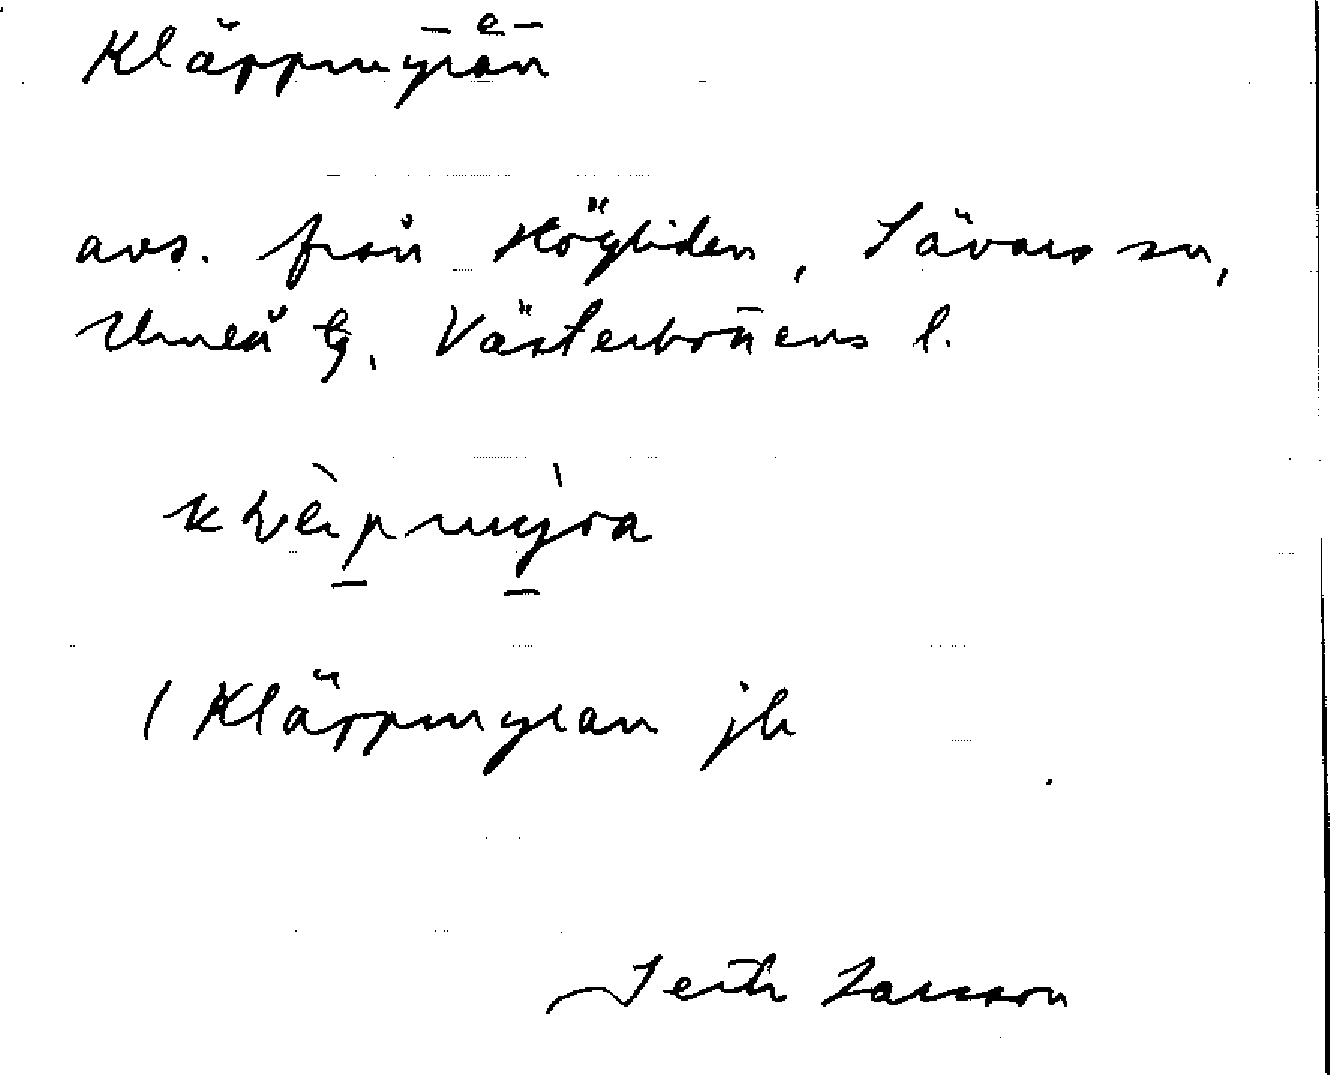 Kläppmyran
avs. från Högliden, Sävars sn,
Umeå tg, Västerbottens l.
( Kläppmyran jb
Larsson